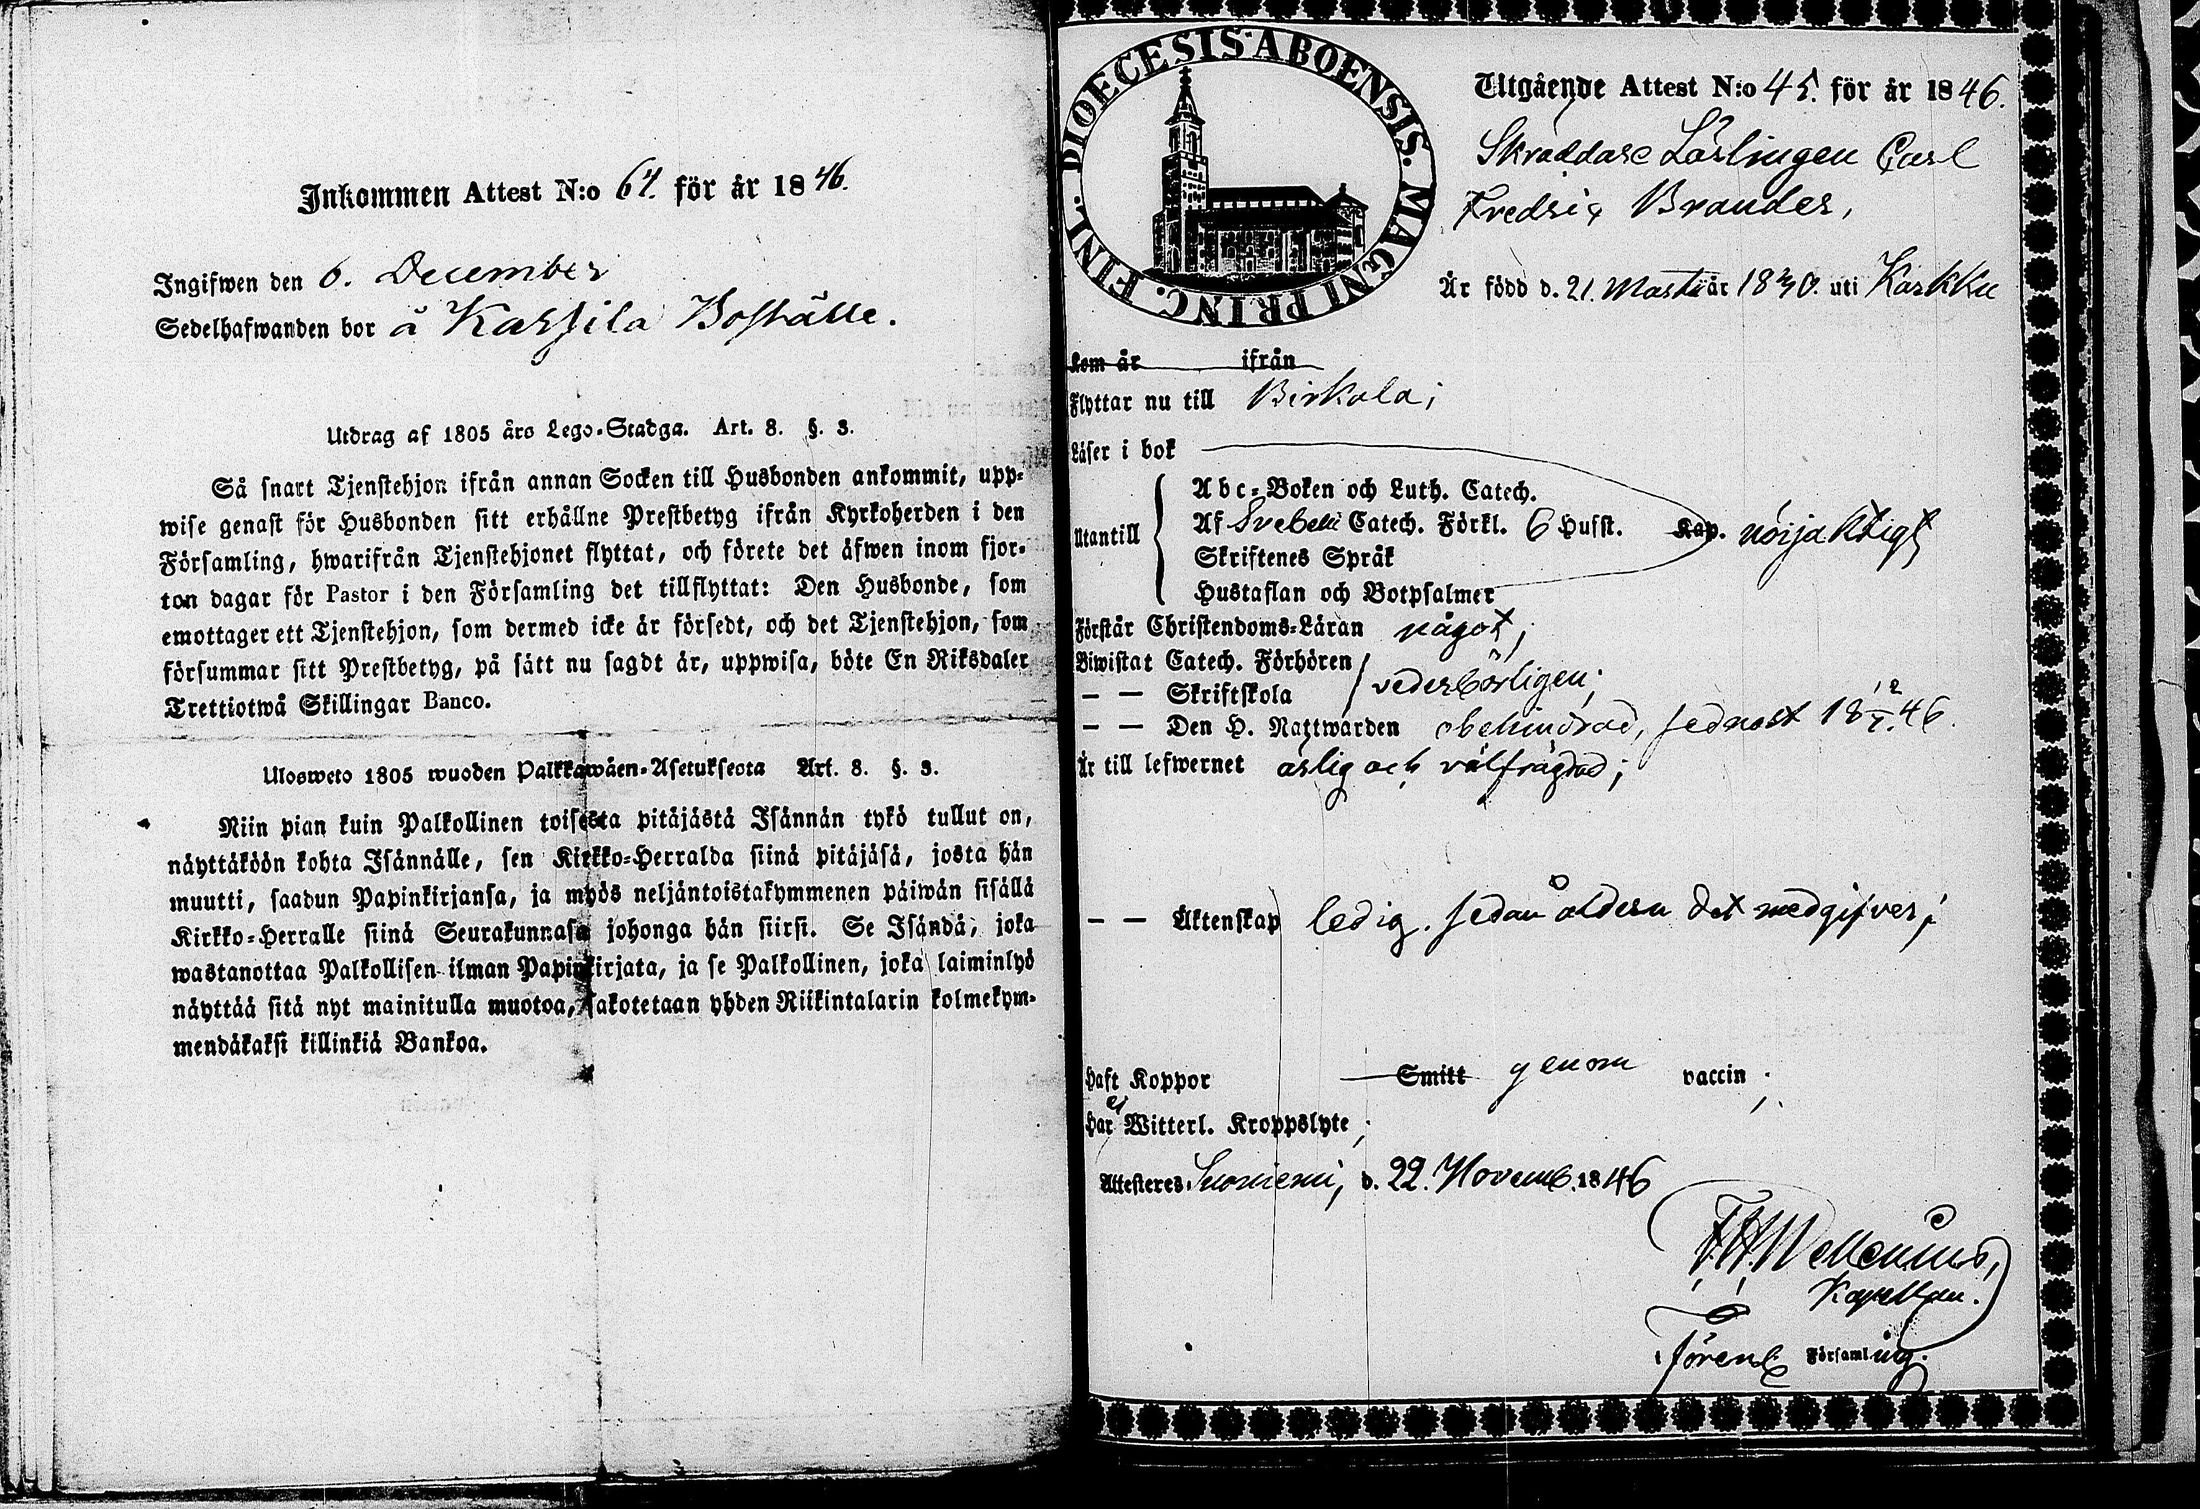 Inkommen Attest N:o 64. för år 1846.
Ingifwen den 6. December
Sedelhafwanden bor å Karsila Boställe.
Utdrag af 1805 års Lego-Stadga. Art. 8. §. 3.
Så snart Tjenstehjon ifrån annan Socken till Husbonden ankommit, upp-
wise genast för Husbonden sitt erhållne Prestbetyg ifrån Kyrkoherden i den
Församling, hwarifrån Tjenstehjonet flyttat, och förete det äfwen inom fjor-
ton dagar för Pastor i den Församling det tillflyttat: Den Husbonde, som
emottager ett Tjenstehjon, som dermed icke är försedt, och det Tjenstehjon, som
försummar sitt Prestbetyg, på sätt nu sagdt är, uppwisa, böte En Riksdaler
Trettiotwå Skillingar Banco.
Ulosweto 1805 wuoden Palkkawäen-Asetuksesta Art. 8. §. 3.
Niin pian kuin Palkollinen toisesta pitäjästä Isännän tykö tullut on,
näyttäköön kohta Isännälle, sen Kirkko-Herralda siinä pitäjäsä, josta hän
muutti, saadun Papinkirjansa, ja myös neljäntoistakymmenen päiwän sisällä
Kirkko-Herralle siinä Seurakunnasa johonga hän siirsi. Se Isändä, joka
wastanottaa Palkollisen ilman Papinkirjata, ja se Palkollinen, joka laiminlyö
näyttää sitä nyt mainitulla muotoa, sakotetaan yhden Riikintalarin kolmekym-
mendäkaksi killinkiä Bankoa.
DIOECESIS ABOENSIS. MAGNI PRINC. FINL.
Utgående Attest N:o 45. för år 1846.
Skräddare Lärlingen Carl
Fredric Brander,
Är född d. 21. Martii år 1830. uti Karkku
Kom år ifrån
Flyttar nu till Birkala;
Läser i bok
Utantill
Abc-Boken och Luth. Catech.
Af Svebelii Catech. Förkl. 6 Husst. Kap. nöjaktigt
Skriftenes Språk
Hustaflan och Botpsalmer
Förstår Christendoms-Läran något;
Biwistat Catech. Förhören
— — Skriftskola vederbörligen;
— — Den H. Nattwarden obehindrad, sednast 18 12/7. 46.
Är till lefwernet ärlig och välfrägdad;
— — Äktenskap ledig. sedan åldern det medgifver;
Haft Koppor Smitt genom vaccin;
Har ej Witterl. Kroppslyte;
Attesteres. Suoniemi, d. 22. Novemb. 1846
F. H. Wellenius,
Kapellan.
i Förenb Församling.